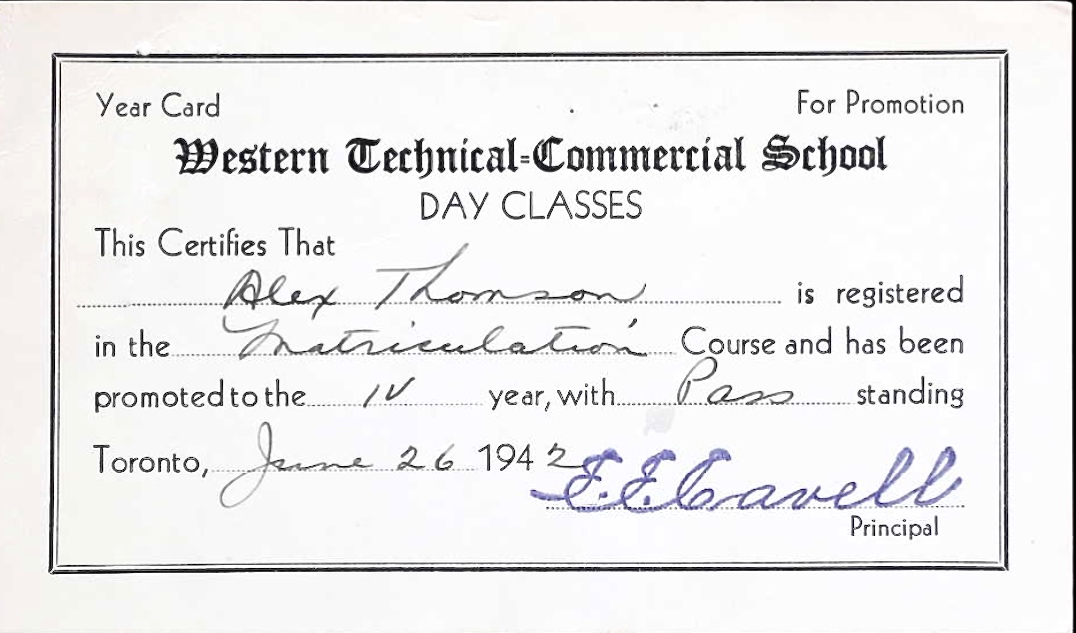 Year Card For Promotion
Western Technical-Commercial School
DAY CLASSES
This Certifies That
Alex Thomson is registered
in the Matriculation Course and has been
promoted to the IV year, with Pass standing
Toronto, June 26 1942
F.F. Cavell
Principal